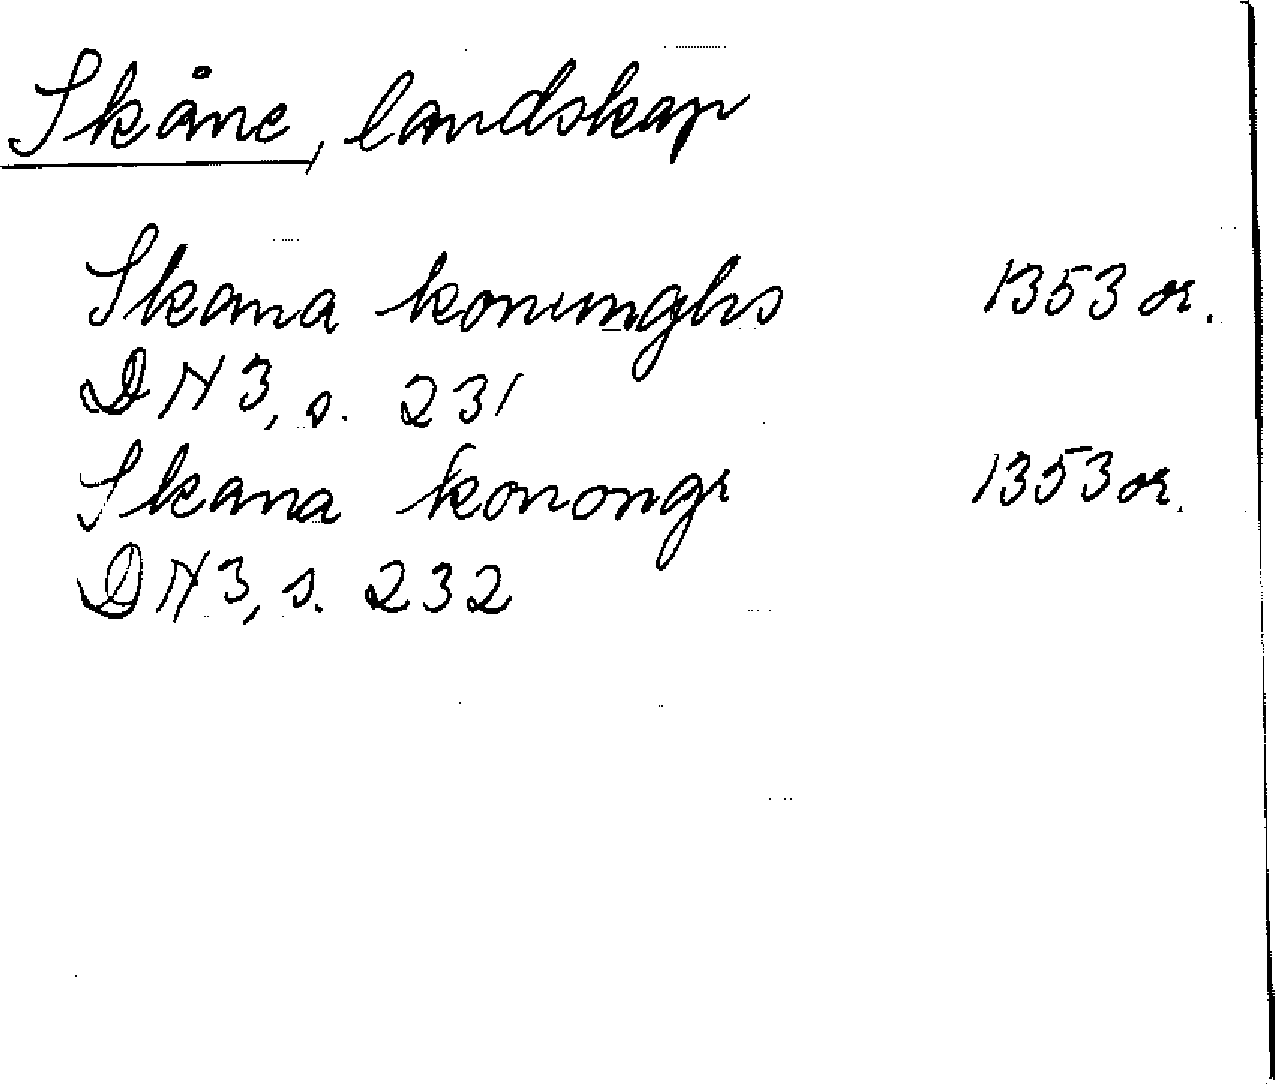 Skåne, landskap
Skana konunghs 1353 or.
DN 3, s. 231
Skana konongr 1353 or.
DN 3, s. 232